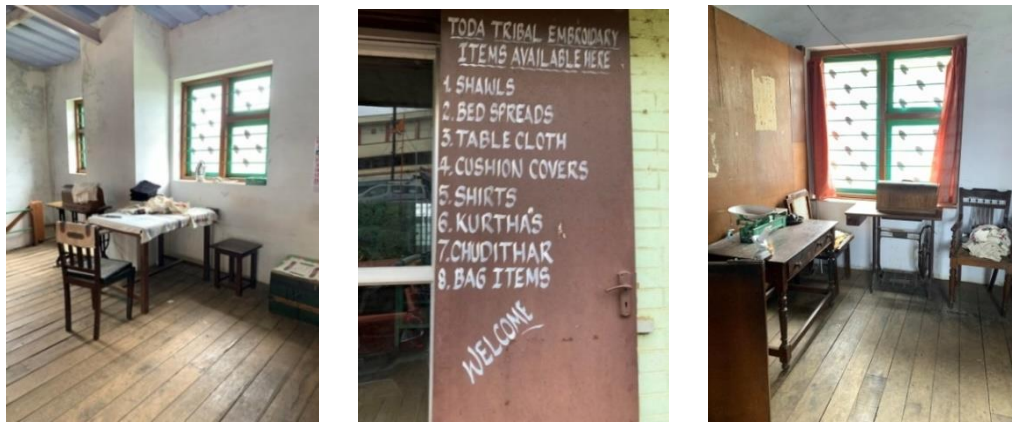 TODA TRIBAL EMBROIDARY
ITEMS AVAILABLE HERE
1. SHAWLS
2. BED SPREADS
3. TABLE CLOTH
4. CUSHION COVERS
5. SHIRTS
6. KURTHAS
7. CHUDITHAR
8. BAG ITEMS
WELCOME